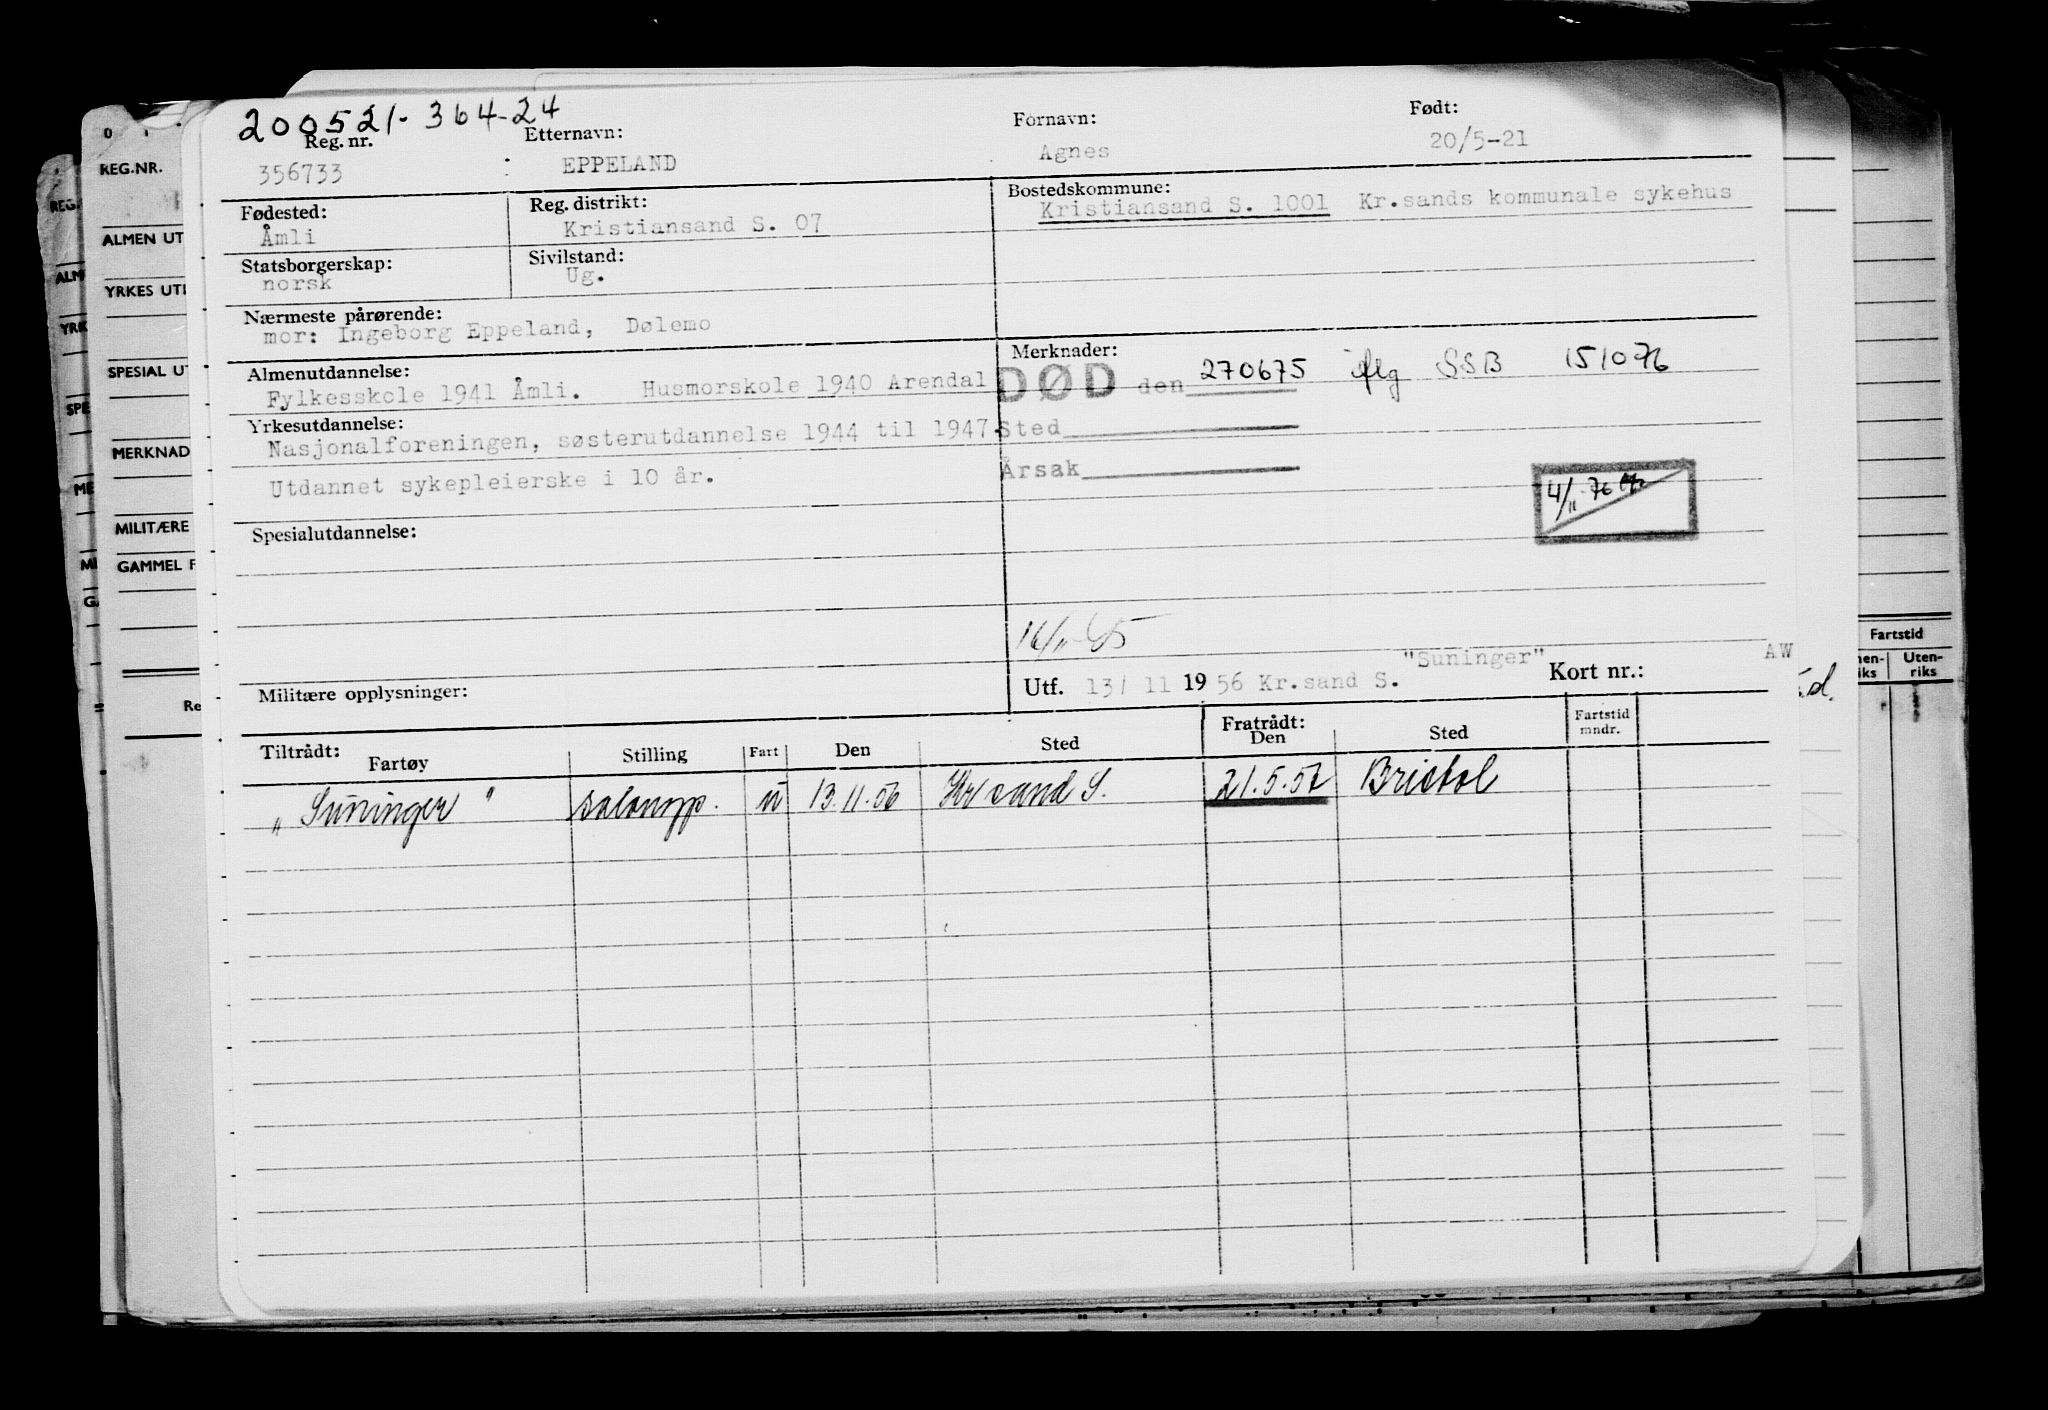 200521-364-24
Reg. nr. Etternavn: Fornavn: Født:
356733 EPPELAND Agnes 20/5-21
Fødested: Reg. distrikt: Bostedskommune:
Åmli Kristiansand S. 07 Kristiansand S. 1001 Kr.sands kommunale sykehus
Statsborgerskap: Sivilstand:
norsk Ug.
Nærmeste pårørende:
mor: Ingeborg Eppeland, Dølemo
Almenutdannelse: Merknader:
Fylkesskole 1941 Åmli. Husmorskole 1940 Arendal
DØD den 270675 iflg SSB 151076
Yrkesutdannelse:
Nasjonalforeningen, søsterutdannelse 1944 til 1947.
Sted
Utdannet sykepleierske i 10 år.
Årsak
4/11-76
Spesialutdannelse:
16/11-65
Militære opplysninger:
Utf. 13/ 11 19 56 Kr.sand S. "Suninger" Kort nr.: AW
Tiltrådt: Fratrådt:
Fartøy Stilling Fart Den Sted Den Sted Fartstid mndr.
"Suninger" salongp. u 13.11.56 Kr sand S. 21.5.57 Bristol
REG.NR.
ALMEN UT
YRKES UT
SPESIAL UT
MERKNAD
MILITÆRE
GAMMEL F
Re
REG.
ALM
YRK
SPE
ME
MI
GA
Fartstid
nen-
iks
Uten-
riks